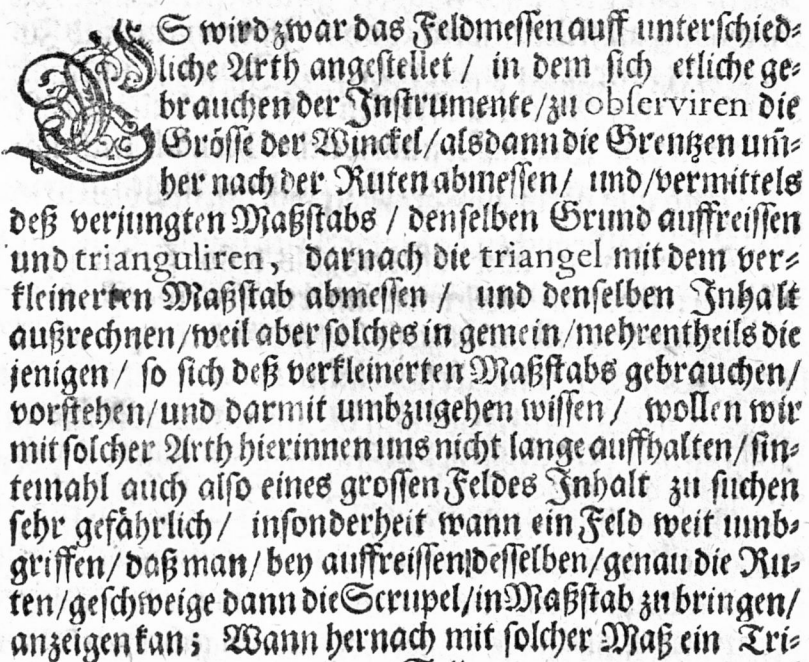 ES wird zwar das Feldmessen auff unterschied⸗
liche Arth angestellet / in dem sich etliche ge⸗
brauchen der Instrumente/zu observiren die
Grösse der Winckel/alsdann die Grentzen um̃⸗
her nach der Ruten abmessen/ und/vermittels
deß verjungten Maßstabs / denselben Grund auffreissen
und trianguliren, darnach die triangel mit dem ver⸗
kleinerten Maßstab abmessen / und denselben Inhalt
außrechnen/weil aber solches in gemein/mehrentheils die
jenigen / so sich deß verkleinerten Maßstabs gebrauchen/
vorstehen/und darmit umbzugehen wissen / wollen wir
mit solcher Arth hierinnen uns nicht lange auffhalten/sin⸗
temahl auch also eines grossen Feldes Inhalt zu suchen
sehr gefährlich/ insonderheit wann ein Feld weit umb⸗
griffen/daß man/bey auffreissen desselben/genau die Ru⸗
ten/geschweige dann die Scrupel/in Maßstab zu bringen/
anzeigen kan; Wann hernach mit solcher Maß ein Tri⸗